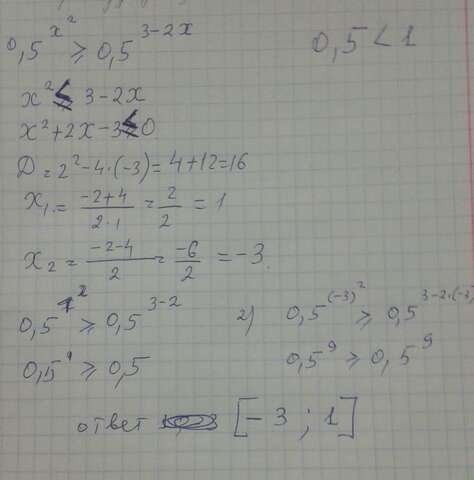 0,5^{x^2} ⩾ 0,5^{3-2x}    0,5 < 1
x^2 ⩽ 3-2x
x^2+2x-3⩽0
D=2^2-4·(-3)=4+12=16
x_1.= \frac{-2+4}{2·1} = \frac{2}{2} = 1
x_2 = \frac{-2-4}{2} = \frac{-6}{2} = -3.
0,5^{1^2} ⩾ 0,5^{3-2}    2) 0,5^{(-3)^2} ⩾ 0,5^{3-2·(-3)}
0,5^1 ⩾ 0,5    0,5^9 ⩾ 0,5^9
ответ [-3 ; 1]